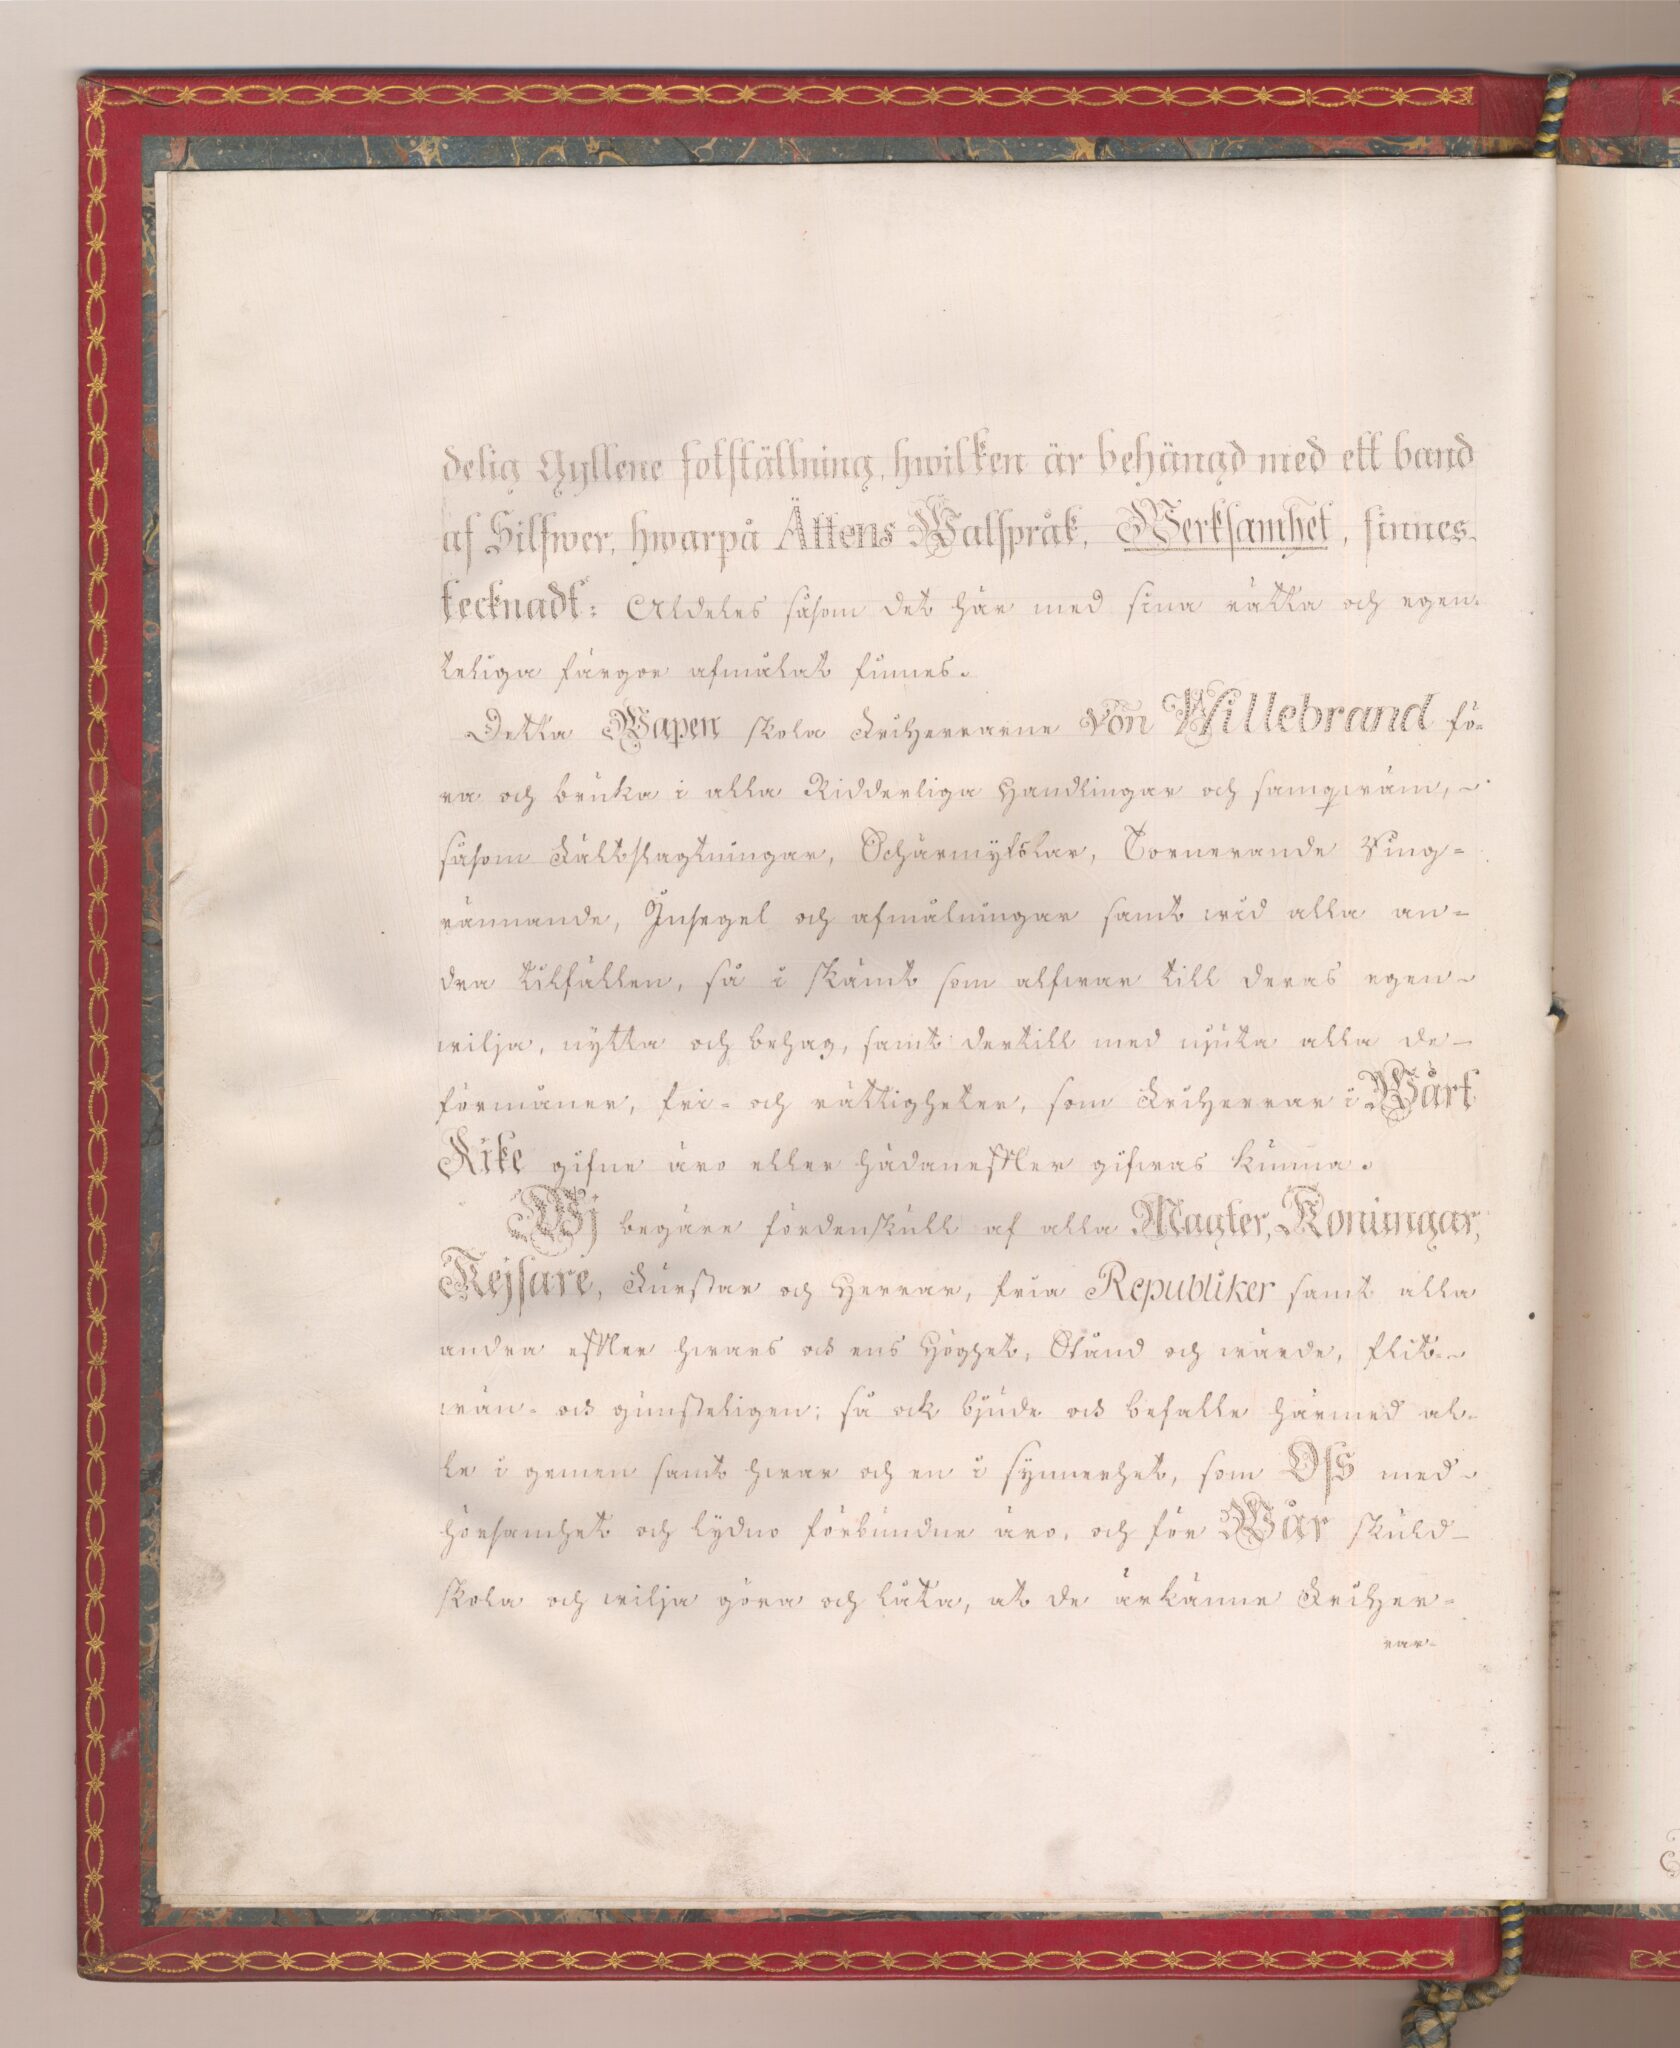 delig Gyllene fotställning, hwilken är behängd med ett band
af Silfwer, hwarpå Ättens Walspråk, Werksamhet, finnes
tecknadt: Aldeles såsom det här med sina rätta och egen-
teliga färgor afmålat finnes.
Detta Wapen skola Friherrarne von Willebrand fö-
ra och bruka i alla Ridderliga Handlingar och samqwäm,
såsom Fältslagtningar, Schärmytslar, Tornerande Ring-
rännande, Insegel och afmålningar samt wid alla an-
dra tilfällen, så i skämt som alfwar till deras egen
wilja, nytta och behag, samt dertill med njuta alla de
förmåner, fri- och rättigheter, som Friherrar i Wårt
Rike gifne äro eller hädanefter gifwas kunna.
Wj begäre fördenskull af alla Magter, Konungar,
Kejsare, Furstar och Herrar, fria Republiker samt alla
andra efter hwars ock ens Höghet, Stånd och wärde, flit-
wän- ock gunsteligen; så ock bjude ock befalle härmed al-
le i gemen samt hwar och en i synnerhet, som Oss med
hörsamhet och lydno förbundne äro, och för Wår skuld
skola och wilja göra och låta, at de ärkänne Friher-
rar-